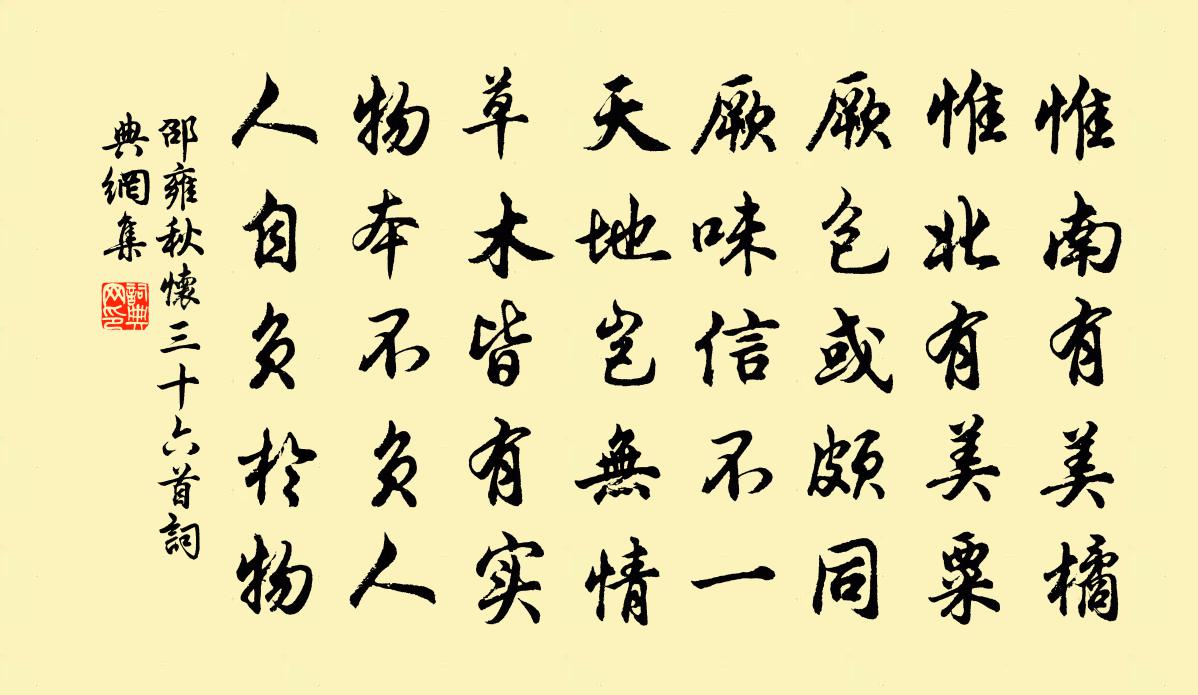 惟南有美橘
惟北有美粟
厥包或頗同
厥味信不一
天地豈無情
草木皆有实
物本不負人
人自負於物
邵雍秋懷三十六首詞
典網集
詞典
网印